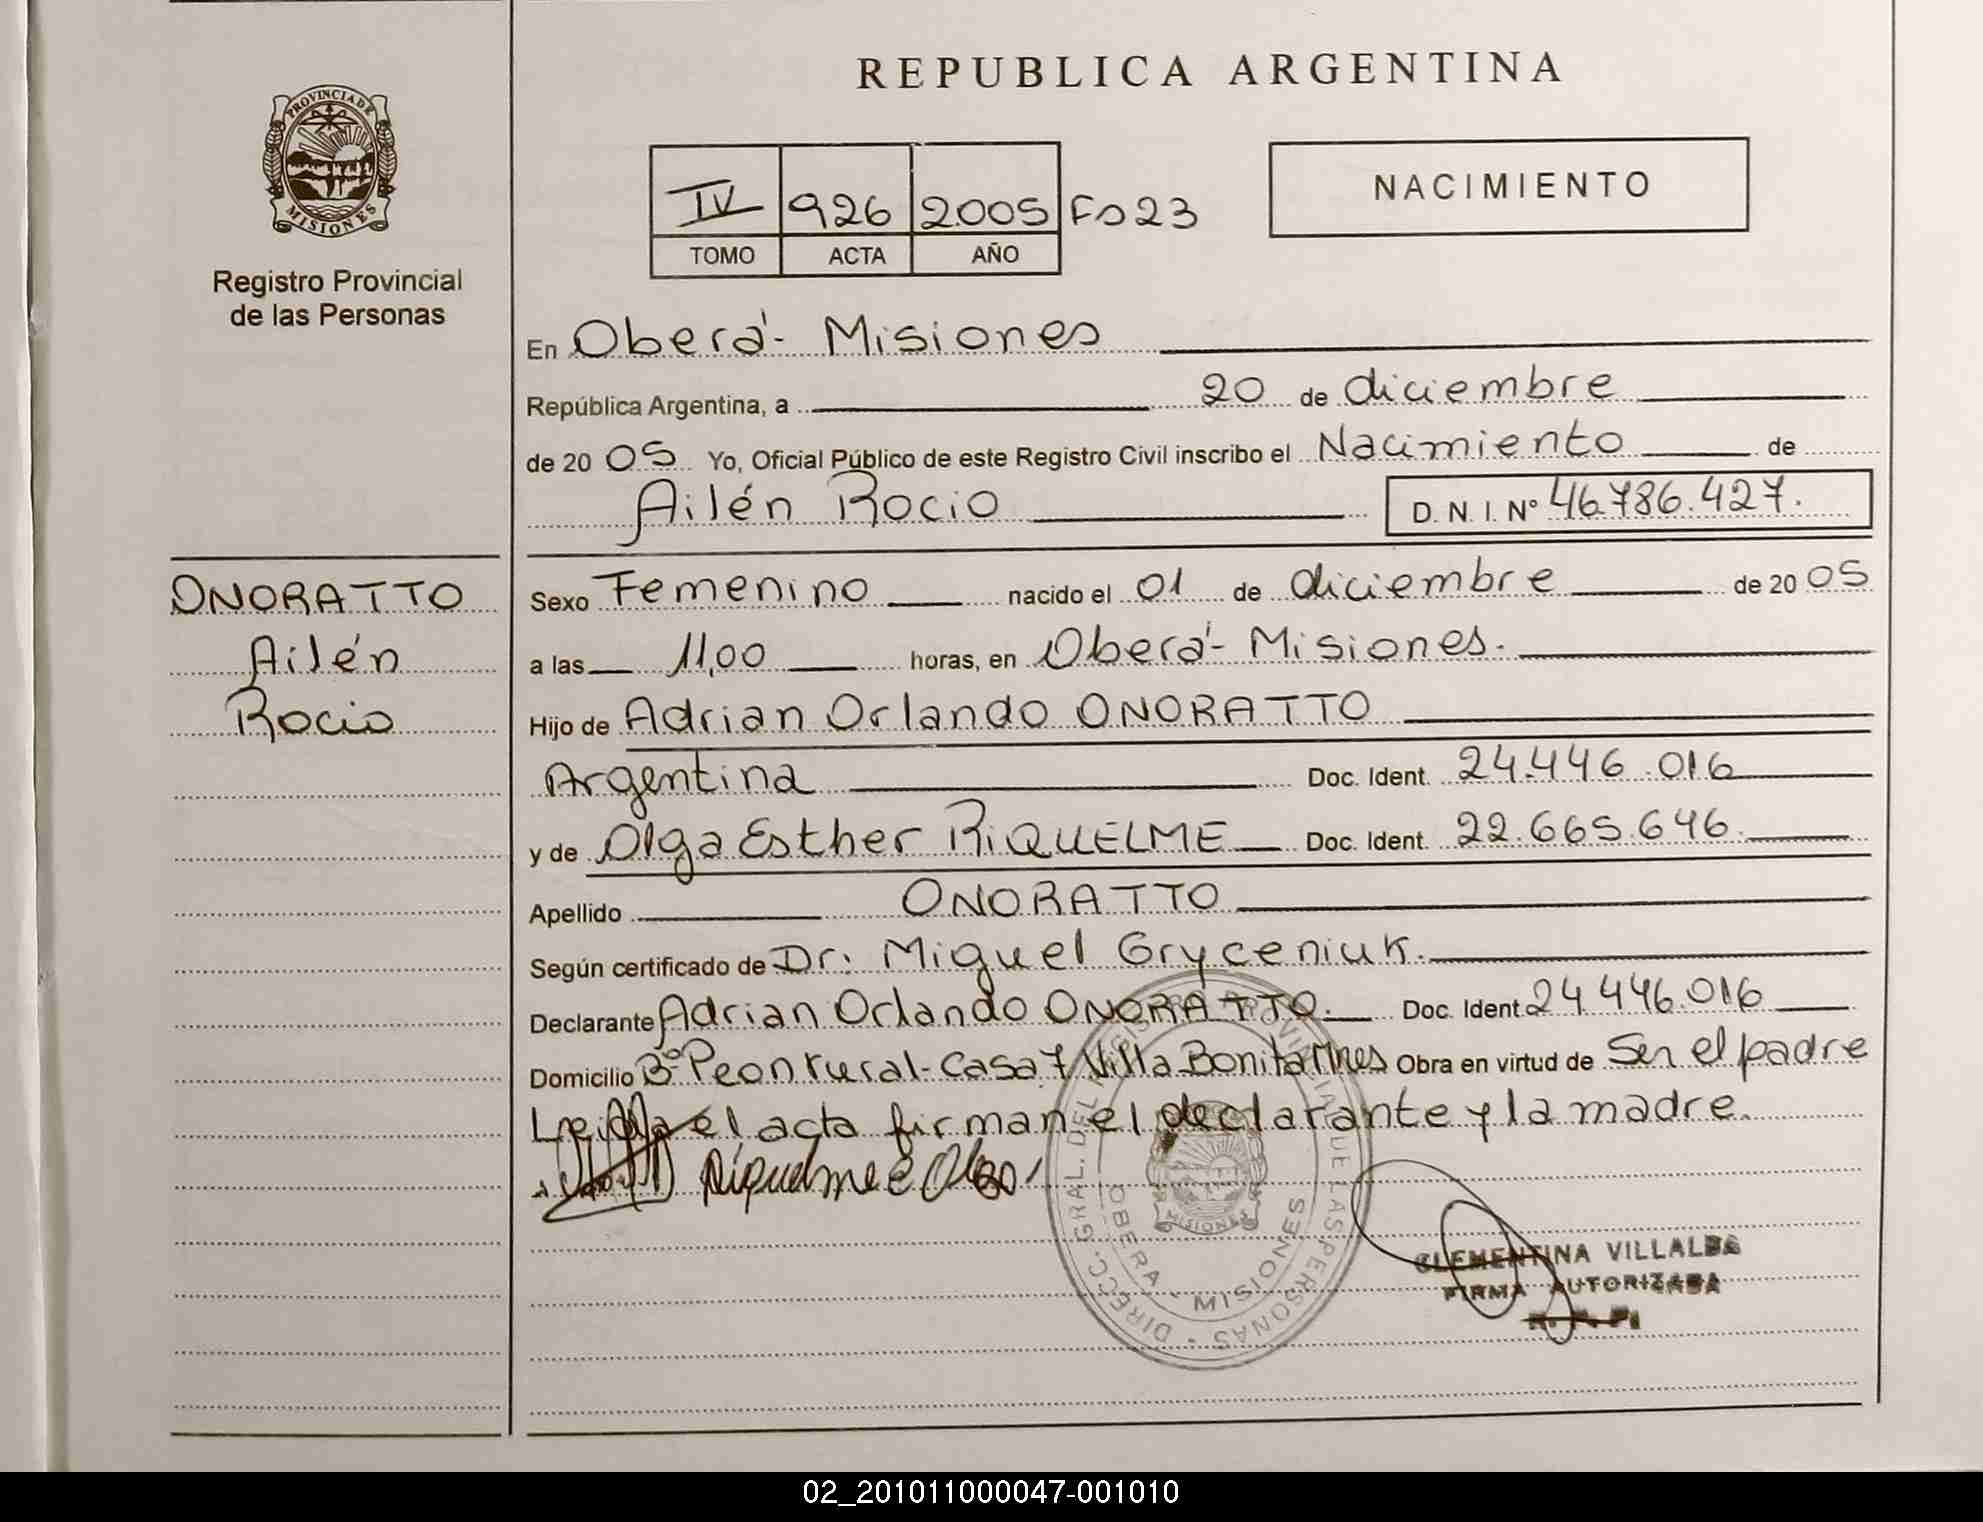 REPUBLICA ARGENTINA
PROVINCIA DE
MISIONES
Registro Provincial
de las Personas
IV 926 2005 Fo 23
TOMO ACTA AÑO
NACIMIENTO
En Oberá - Misiones
República Argentina, a 20 de diciembre
de 20 05 Yo, Oficial Público de este Registro Civil inscribo el Nacimiento de
Ailén Rocio D. N. I. Nº 46.786.427.
ONORATTO
Ailén
Rocio
Sexo Femenino nacido el 01 de diciembre de 20 05
a las 11,00 horas, en Oberá - Misiones.
Hijo de Adrian Orlando ONORATTO
Argentina Doc. Ident. 24.446.016
y de Olga Esther RIQUELME Doc. Ident. 22.665.646.
Apellido ONORATTO
Según certificado de Dr. Miguel Gryceniuk.
Declarante Adrian Orlando ONORATTO. Doc. Ident. 24.446.016
Domicilio Bº Peon rural - Casa 7 Villa Bonita Mnes Obra en virtud de Ser el padre
Leida el acta firman el declarante y la madre.
Riquelme E Olga
DIRECC. GRAL. DEL REGISTRO PROVINCIAL DE LAS PERSONAS
OBERA - MISIONES
MISIONES
CLEMENTINA VILLALBA
FIRMA AUTORIZADA
R. P. P.
02_201011000047-001010